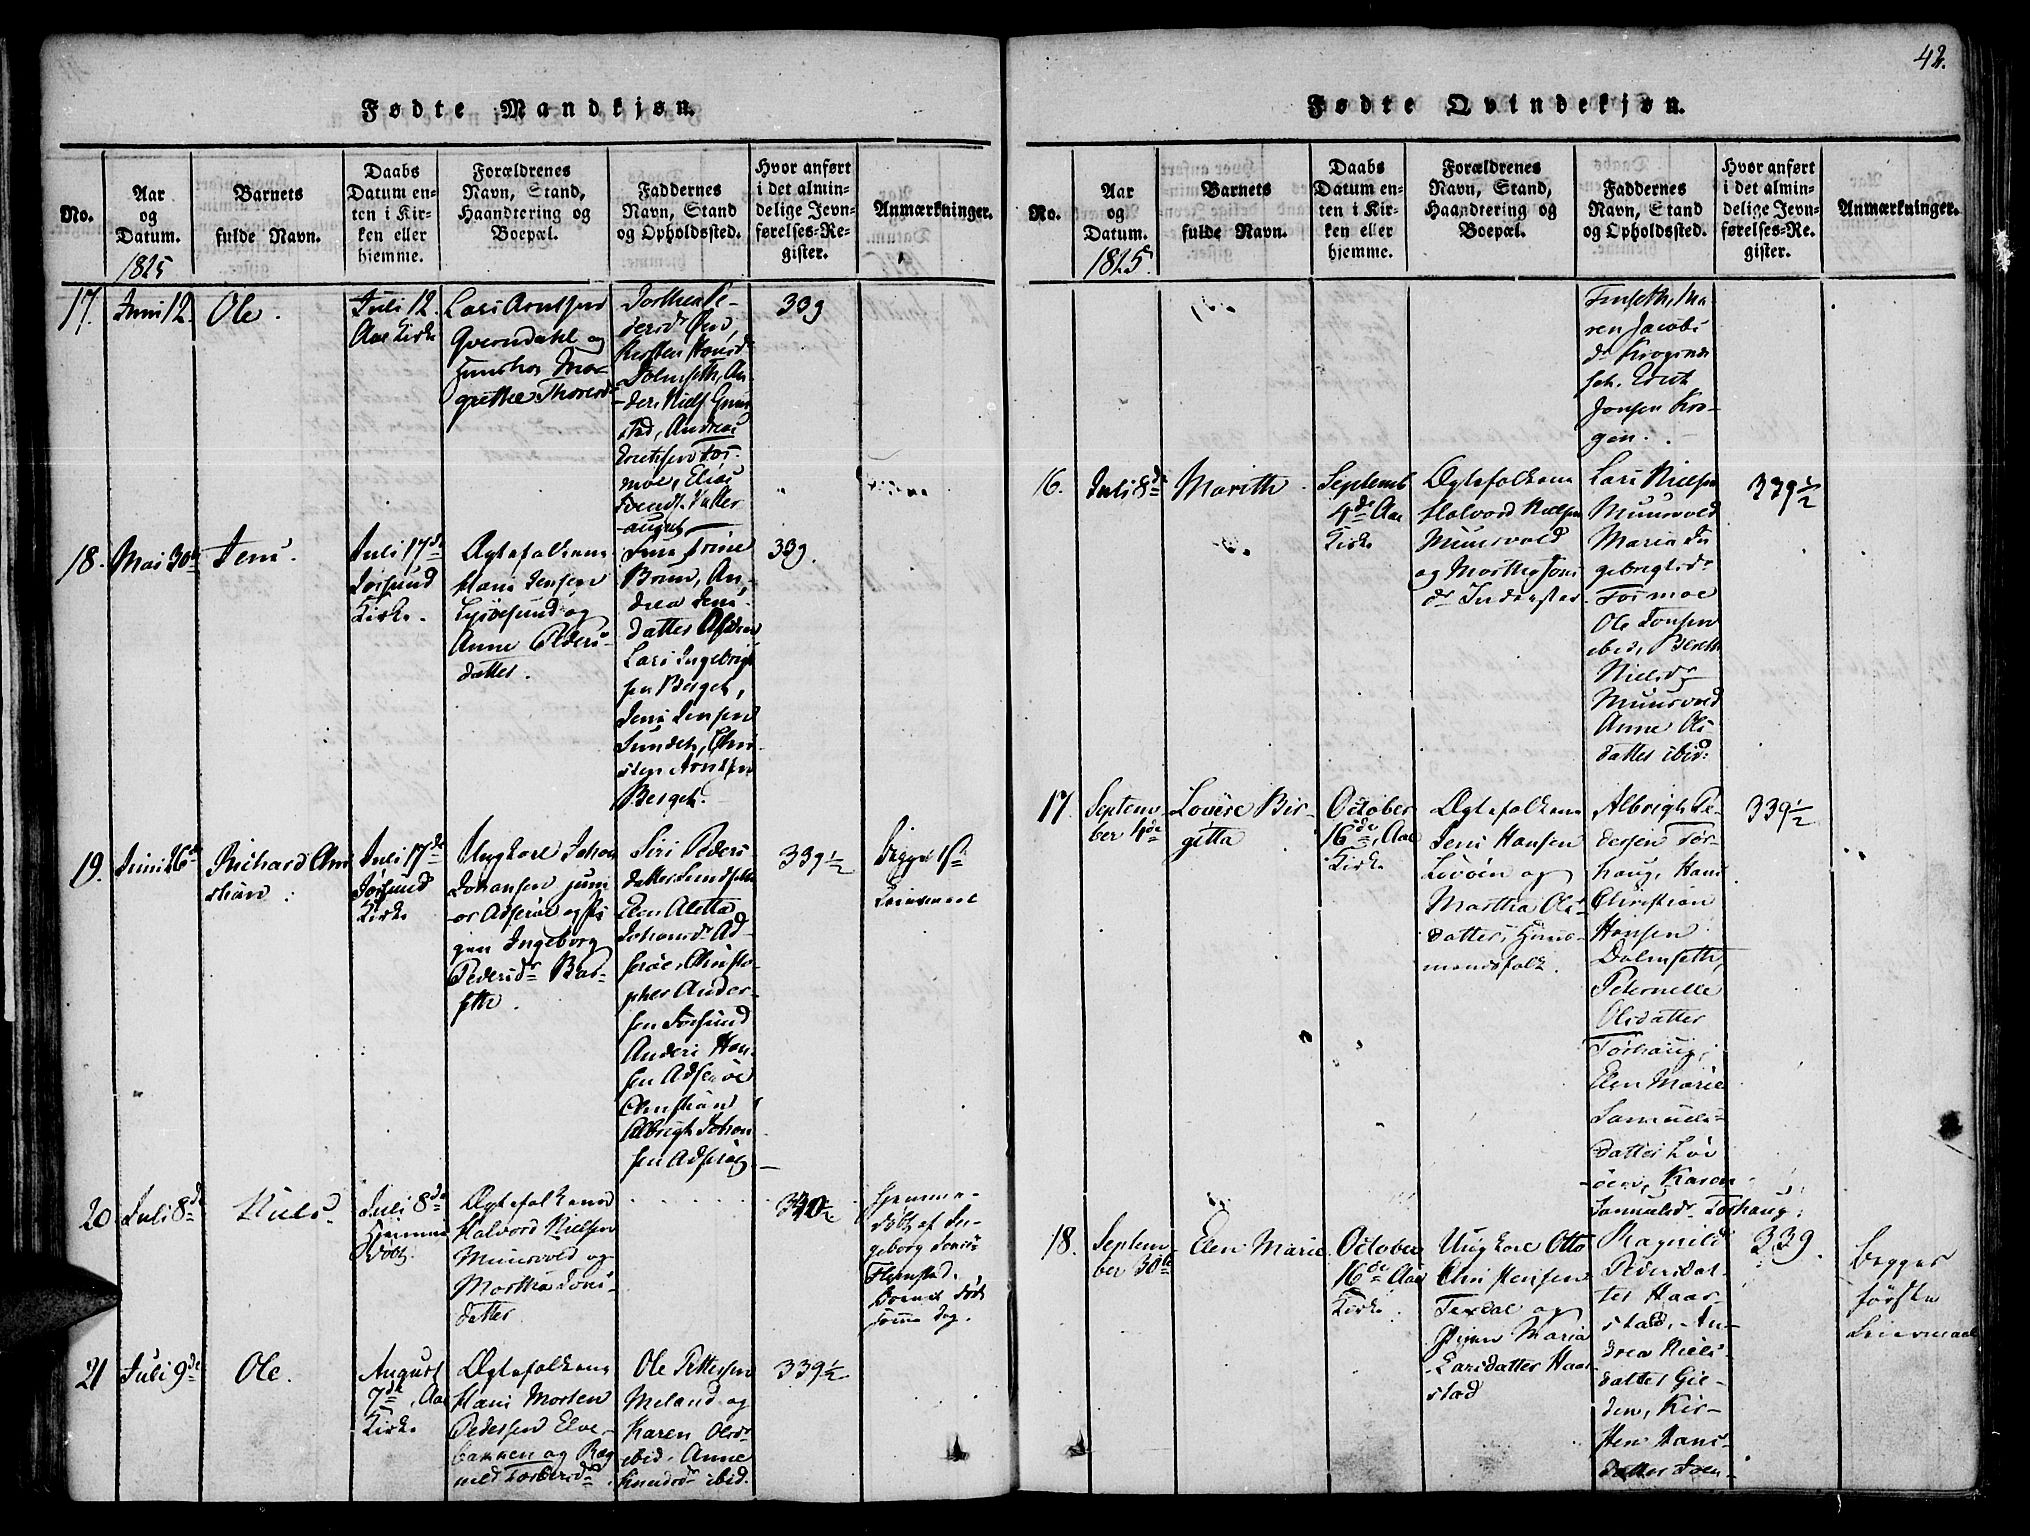 42.
Fødte Mandkjøn.
No.
Aar
og
Datum.
1825
Barnets
fulde Navn.
Daabs
Datum en-
ten i Kir-
ken eller
hjemme.
Forældrenes
Navn, Stand,
Haandtering og
Boepæl.
Faddernes
Navn, Stand
og Opholdssted.
Hvor anført
i det almin-
delige Jevn-
førelses-Re-
gister.
Anmærkninger.
17.
Juni 12.
Ole.
Juli 12.
Aae Kirke
Lars Arntsen
Qverndahl og
grethe Thoresdr
dersdr Øen,
Kirsten Hansdr
Dolmseth, An-
stad, Andreas
Erichsen Tor-
moe, Elias
339
18.
Mai 30te
Jens.
Juli 17de
Jøssund
Kirke.
Ægtefolkene
Hans Jensen
Lysøesund og
Anne Peders-
datter.
Jens Trine
Brun, An-
drea Jens-
datter
Lars Ingebrigt-
sen Berget,
Jens Jensen
Sundet, Chri-
sten Arntsen
Berget.
339.
19.
Juni 26de
Richard Chri
stian.
Juli 17de
Jøssund
Kirke
Ungkarl Johan
Johansen juni-
or Adserøe og Pi
gen Ingeborg
Pedersdr Bas-
Siri Peders
datter
Elen Aletta
Johansdr Ad-
serøe, Christo-
pher Ander-
sen Jøssund
Anders Han-
sen Adserøe
Christian
Albrigt Johan
sen Adserøe
339½
Begges 1ste
Leiermaal
20
Juli 8de
Niels.
Juli 8de
Hjemme
døbt.
Ægtefolkene
Halvord Nielsen
Muursvold og
Martha Jons-
datter
340½
Hjemme-
døbt af In-
geborg Jens-
Barnet døde
samme Dag.
21
Juli 9de
Ole.
August
7de, Aae
Kirke
Ægtefolkene
Hans Morten
Pedersen Elve-
bakken og Rag
nild Torbersdr.
Ole Pettersen
Meland og
Karen Olsdr
ibid. Anne
Knudsdr ibid.
339½
Fødte Qvindekjøn.
No.
Aar
og
Datum.
1825.
Barnets
fulde Navn.
Daabs
Datum en-
ten i Kir-
ken eller
hjemme.
Forældrenes
Navn, Stand,
Haandtering og
Boepæl.
Faddernes
Navn, Stand
og Opholdssted.
Hvor anført
i det almin-
delige Jevn-
førelses-Re-
gister.
Anmærkninger.
ren Jacobs
Jonsen Kro-
gen.
16.
Juli 8de
Marith
Septemb
4de Aae
Kirke
Ægtefolkene
Halvord Nielsen
Muursvold
og Marthe Jons
dr
Lars Nielsen
Muursvold
Maria In
gebrigtsdr
Tormoe
Ole Jonsen
ibid, Bereth
Nielsdr
Muursvold
Anne Ols
datter ibid:
339½
17.
Septem-
ber
Lovise Bir-
gitta
October
16de, Aae
Kirke
Ægtefolkene
Jens Hansen
Lovøen og
Martha Ols-
datter, Huus-
mandsfolk.
Albrigt Pe-
dersen Tør-
haug, Hans
Christian
Hansen
Dolmseth,
Peternelle
Olsdatter
Tørhaug,
Elen Marie
Samuels-
datter Lov
øen, Karen
Samuelsdr Tørhaug.
339½
18.
Septem-
ber 30te
Elen Marie
October
16de Aae
Kirke
Ungkarl Otto
Christensen
Texdal og
Pigen Maria
Larsdatter Haar
stad
Ragnild
Pedersdat-
ter Haar-
stad, An-
drea Niels-
datter Gie-
den, Kir-
sten Hans-
datter
339.
begges
første
Leiermaal